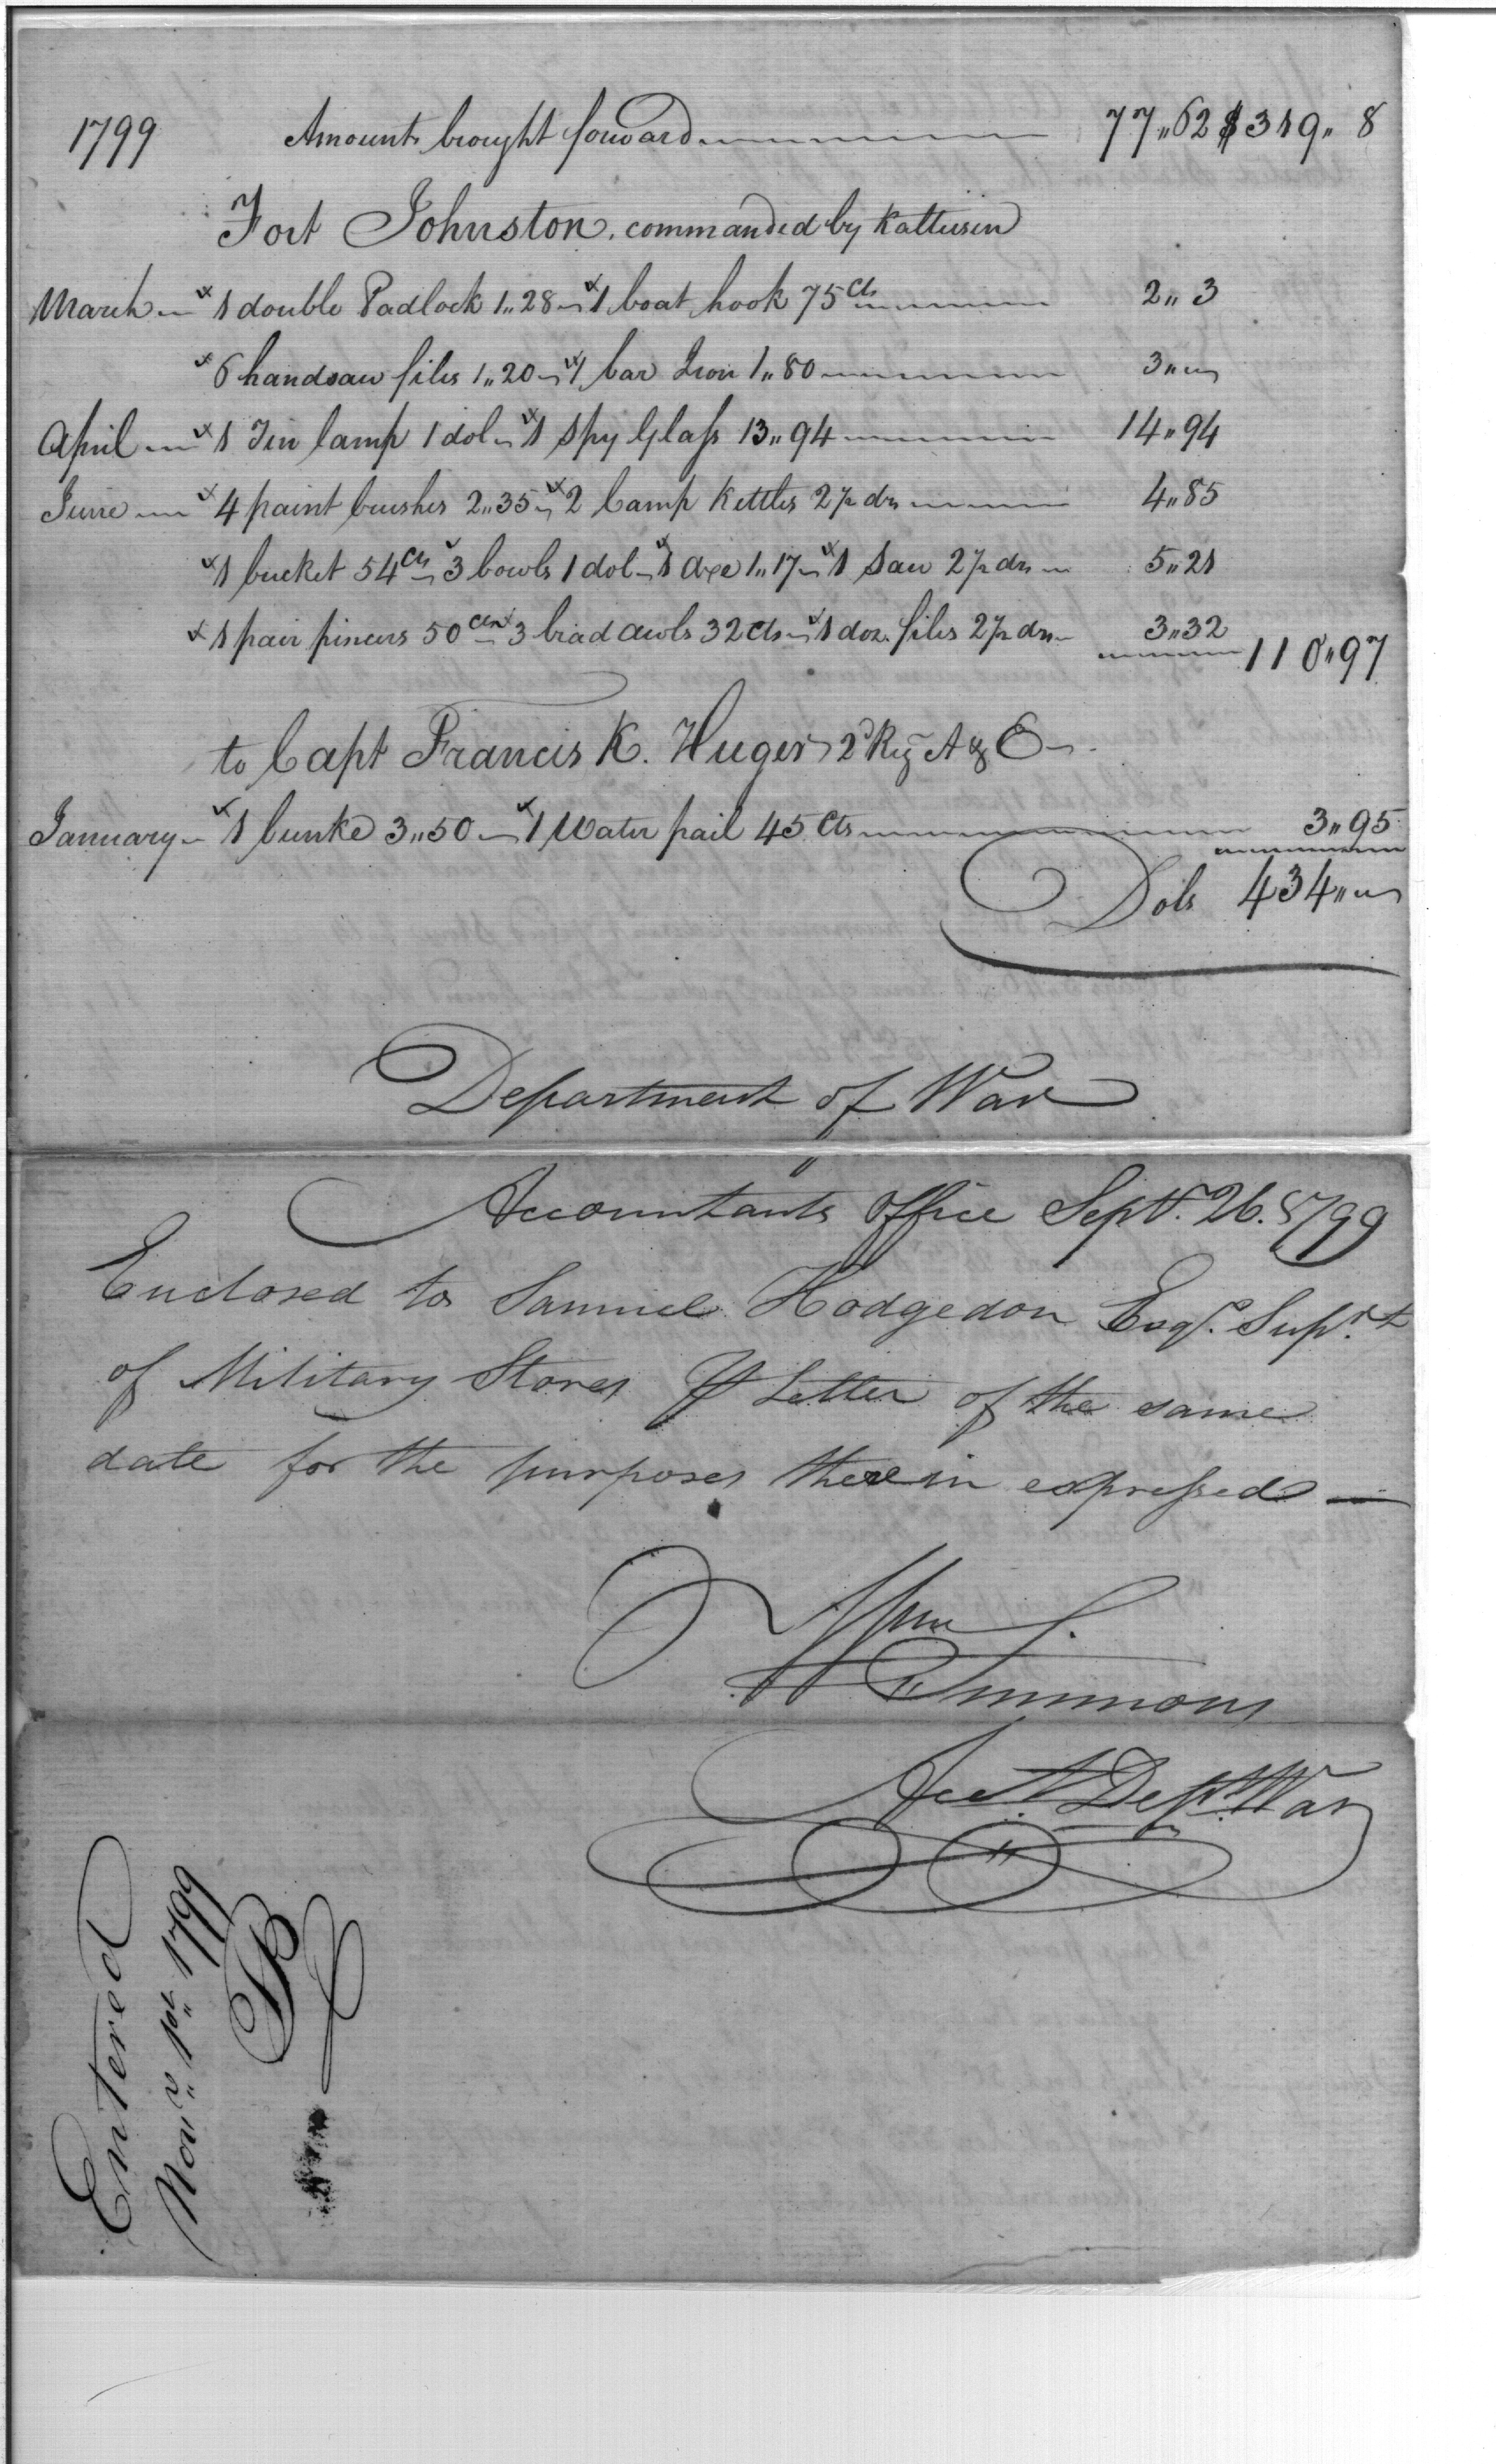 1799 Amounts brought forward 77,,62 $319,, 8
Fort Johnston, commanded by Kalteisen
March x 1 double Padlock 1,,28 x 1 boat hook 75 Cts 2,,3
x 6 handsaw files 1,,20 x 1 bar Iron 1,,80 3,,
April x 1 Tin lamp 1 dol x 1 spy Glass 13,,94 14,,94
June x 4 paint brushes 2,,35 x 2 Camp Kettles 2½ drs 4,,85
x 1 bucket 54 Cts 3 bowls 1 dol x 1 axe 1,,17 x 1 Saw 2½ drs 5,,21
x 1 pair pincers 50 cts x 3 brad awls 32 Cts x 1 doz. files 2½ drs 3,,32
110,,97
to Capt Francis K. Huger 2d Reg A & E
January x 1 bunke 3,,50 x 1 Water pail 45 Cts 3,,95
Dols 434,,
Department of War
Accountants Office Sept. 26. 1799
Enclosed to Samuel Hodgedon Esqr. Supr.t
of Military Stores ⅌ Letter of the same
date for the purposes therein expressed —
Wm
Simmons
Acct. Dept. War
Entered
Novr 1st 1799
P